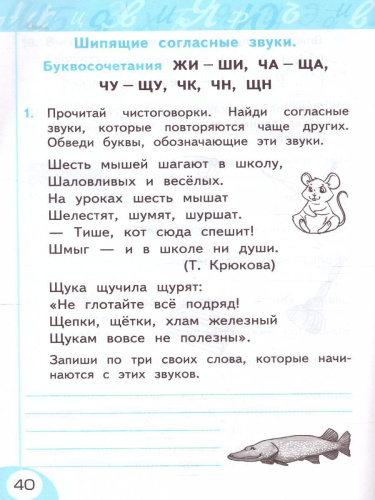 Шипящие согласные звуки.
Буквосочетания ЖИ – ШИ, ЧА – ЩА,
ЧУ – ЩУ, ЧК, ЧН, ЩН
1. Прочитай чистоговорки. Найди согласные
звуки, которые повторяются чаще других.
Обведи буквы, обозначающие эти звуки.
Шесть мышей шагают в школу,
Шаловливых и весёлых.
На уроках шесть мышат
Шелестят, шумят, шуршат.
— Тише, кот сюда спешит!
Шмыг — и в школе ни души.
(Т. Крюкова)
Щука щучила щурят:
«Не глотайте всё подряд!
Щепки, щётки, хлам железный
Щукам вовсе не полезны».
Запиши по три своих слова, которые начи-
наются с этих звуков.
40